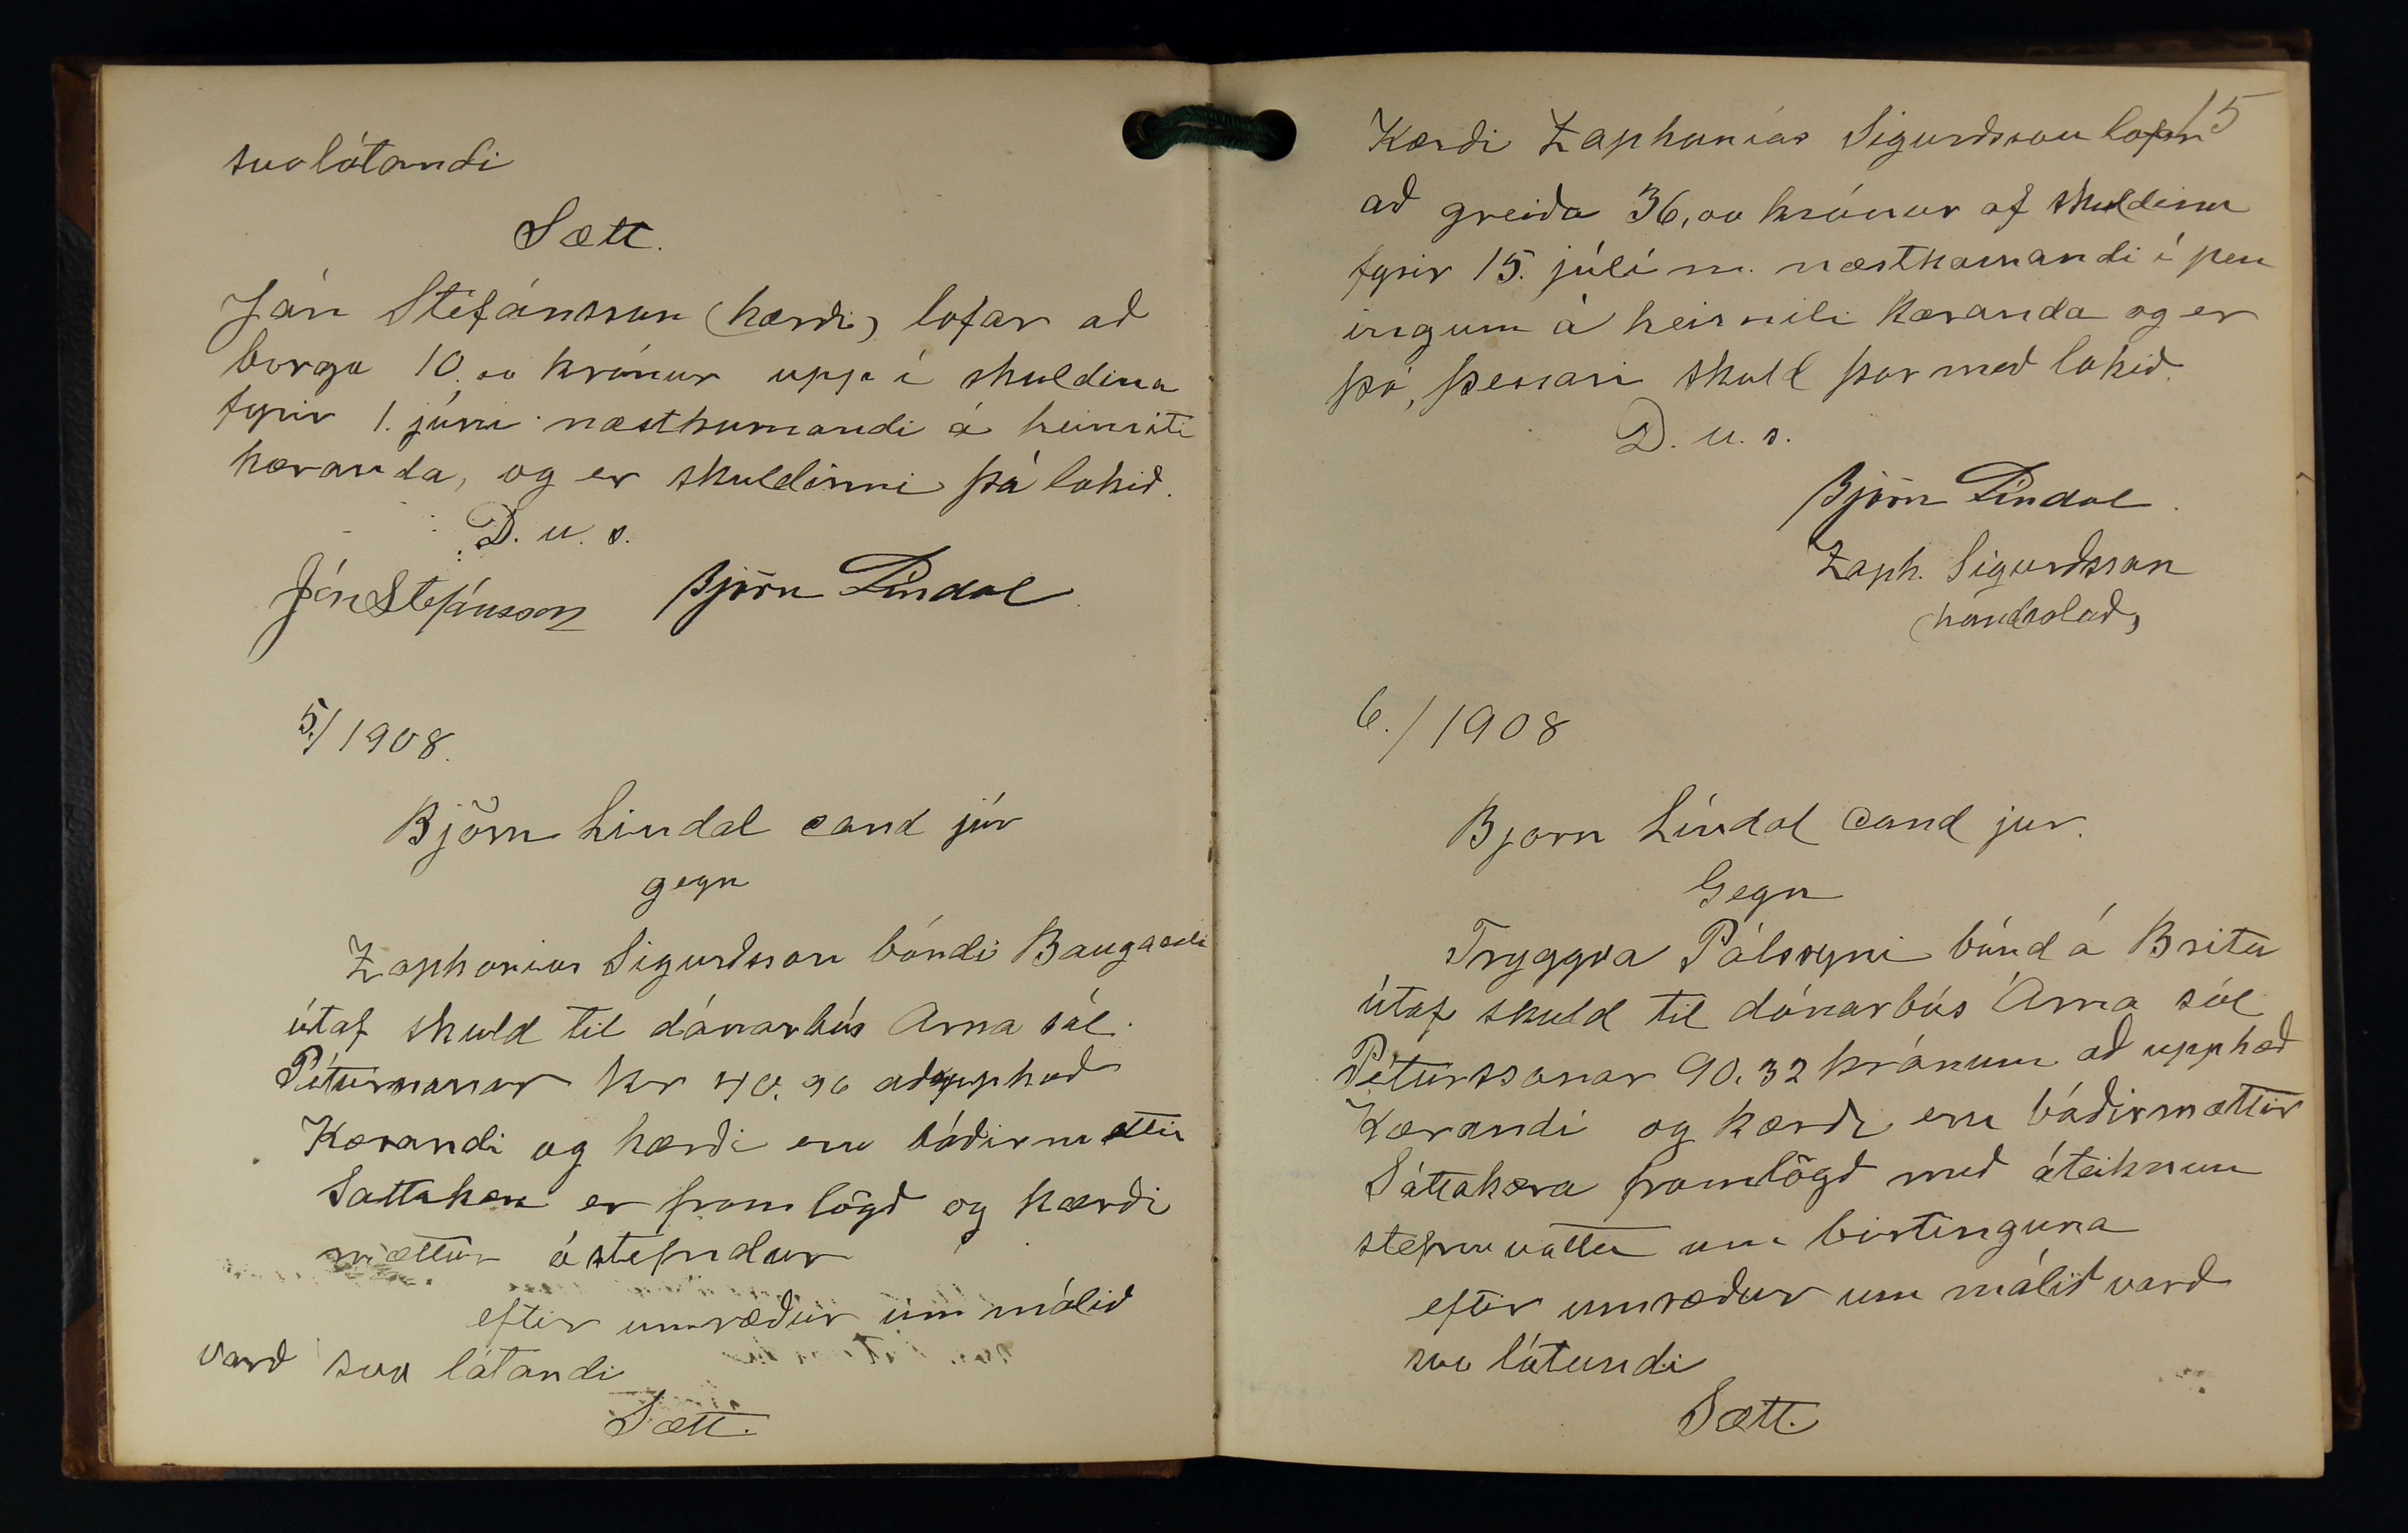 svolátandi
Sætt.
Jón Stefánsson (kærði) lofar að
borga 10.00 krónur upp í skuldina
fyrir 1. júní næstkomandi á heimili
kæranda, og er skuldinni þá lokið.
D. u. s.
Jón Stefánsson Björn Líndal
5./1908.
Björn Lindal cand júr
gegn
Zaphonias Sigurdsson bóndi Baugaseli
útaf skuld til dánarbús Arna sál.
Péturssonar kr 40.96 að upphæð
Kærandi og kærði eru báðir mættir
Sáttakæra er framlögð og kærði
mættur óstefndur
eftir umræður um málið
varð svo látandi
Sætt.
15
Kærði Zaphanías Sigurðsson lofar
að greiða 36,00 krónur af skuldinni
fyrir 15. júlí m. næstkomandi í pen
ingum á heimili kæranda og er
þá, þessari skuld þar með lokið.
D. u. s.
Björn Líndal.
Zaph. Sigurðsson
(handsalað)
6./1908
Bjorn Líndal Cand jur.
Gegn
Tryggva Pálssyni bónd á
útaf skuld til dánarbús Árna sál
Péturssonar 90.32 krónum að upphæð
Kærandi og kærði eru báðir mættir
Sáttakæra framlögð með áteiknun
stefnuvotta um birtinguna
eftir umræður um málið varð
svo látandi
Sætt.